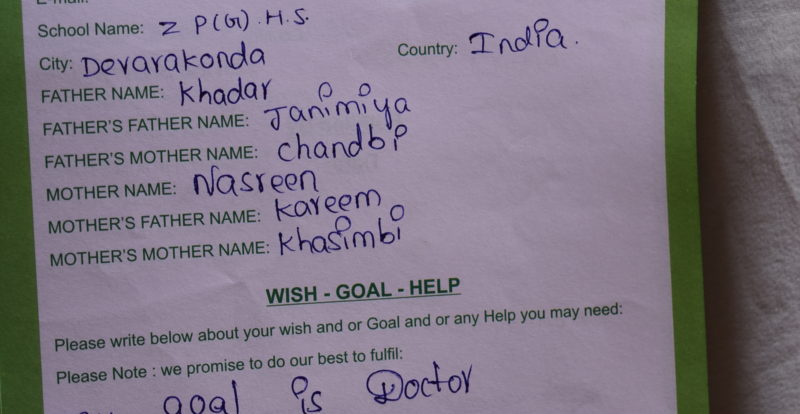 E-mail:
School Name: Z P(G).H.S.
City: Devarakonda Country: India.
FATHER NAME: Khadar
FATHER'S FATHER NAME: Janimiya
FATHER'S MOTHER NAME: Chandbi
MOTHER NAME: Nasreen
MOTHER'S FATHER NAME: Kareem
MOTHER'S MOTHER NAME: Khasimbi
WISH - GOAL - HELP
Please write below about your wish and or Goal and or any Help you may need:
Please Note : we promise to do our best to fulfil:
goal is Doctor